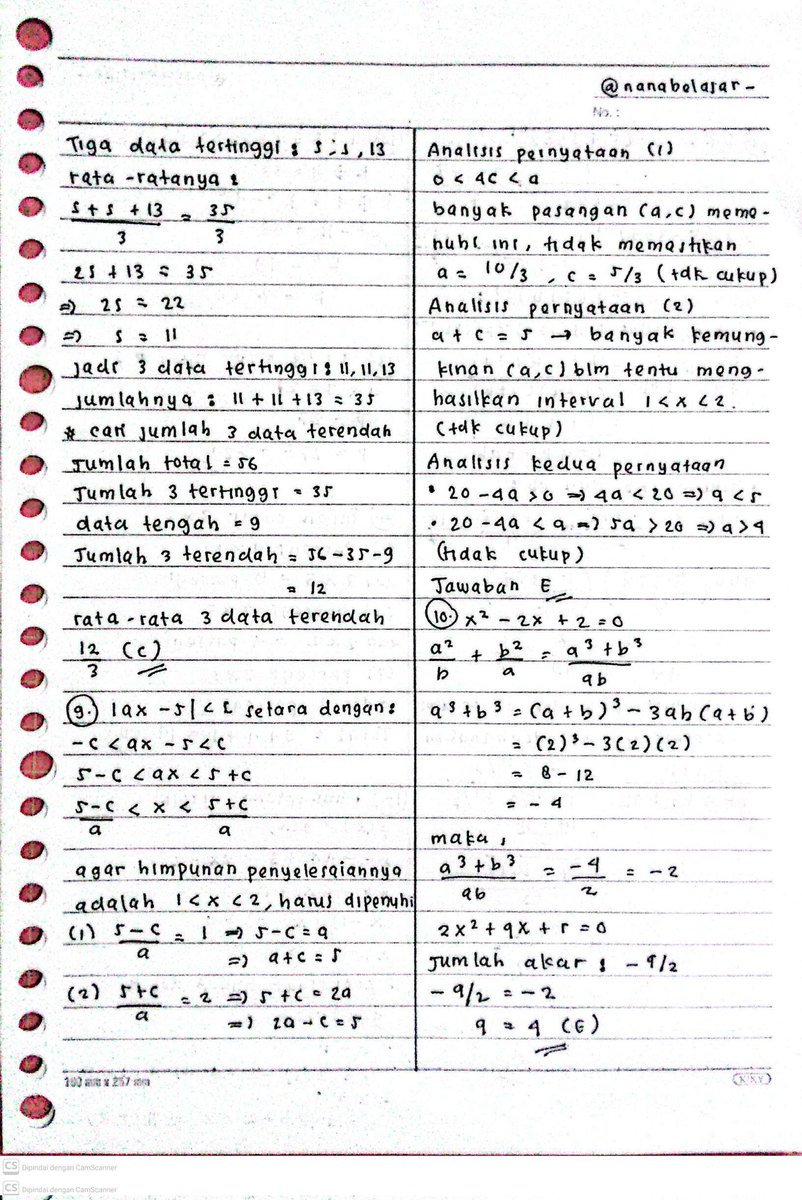 @nanabelajar-
No. :
Tiga data tertinggi : s, s, 13
rata-ratanya :
s + s + 13 / 3 = 35 / 3
2s + 13 = 35
=> 2s = 22
=> s = 11
jadi 3 data tertinggi : 11, 11, 13
jumlahnya : 11 + 11 + 13 = 35
* cari jumlah 3 data terendah
Jumlah total = 56
Jumlah 3 tertinggi = 35
data tengah = 9
Jumlah 3 terendah = 56-35-9
= 12
rata-rata 3 data terendah
12 / 3 (C)
9. |ax - 5| < c setara dengan :
-c < ax - 5 < c
5-c < ax < 5+c
5-c / a < x < 5+c / a
agar himpunan penyelesaiannya
adalah 1 < x < 2, harus dipenuhi
(1) 5-c / a = 1 => 5-c = a
=> a+c = 5
(2) 5+c / a = 2 => 5+c = 2a
=> 2a-c = 5
Analisis pernyataan (1)
0 < 4c < a
banyak pasangan (a,c) meme-
nuhi ini, tidak memastikan
a = 10/3, c = 5/3 (tdk cukup)
Analisis pernyataan (2)
a + c = 5 → banyak kemung-
kinan (a,c) blm tentu meng-
hasilkan interval 1 < x < 2.
(tdk cukup)
Analisis kedua pernyataan
• 20 - 4a > 0 => 4a < 20 => a < 5
• 20 - 4a < a => 5a > 20 => a > 4
(tidak cukup)
Jawaban E
10. x² - 2x + 2 = 0
a² / b + b² / a = a³ + b³ / ab
a³ + b³ = (a + b)³ - 3ab(a + b)
= (2)³ - 3(2)(2)
= 8 - 12
= -4
maka,
a³ + b³ / ab = -4 / 2 = -2
2x² + qx + r = 0
Jumlah akar : -q/2
-q/2 = -2
q = 4 (E)
180 mm x 257 mm
KIKY
CS Dipindai dengan CamScanner
CS Dipindai dengan CamScanner